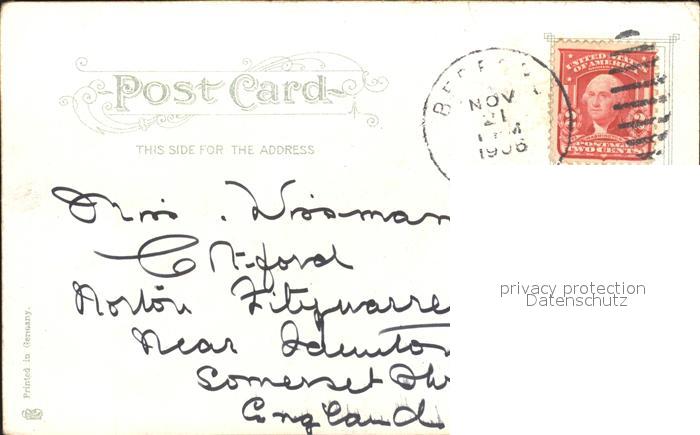 POST CARD
THIS SIDE FOR THE ADDRESS
NOV
21
1906
UNITED STATES
OF AMERICA
POSTAGE
TWO CENTS
Miss. Wissman
Norton Fitzwarre
Near
Somerset Sh
England
privacy protection
Datenschutz
Printed in Germany.